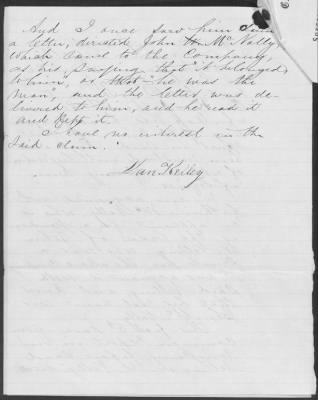 And I once saw him
a letter, directed John H. McNally,
which came to the Company,
as his, saying that it belonged
to him, or that "he was the
man", and the letter was de-
livered to him, and he read it
and kept it.
I have no interest in the
said claim.
Dan Keiley